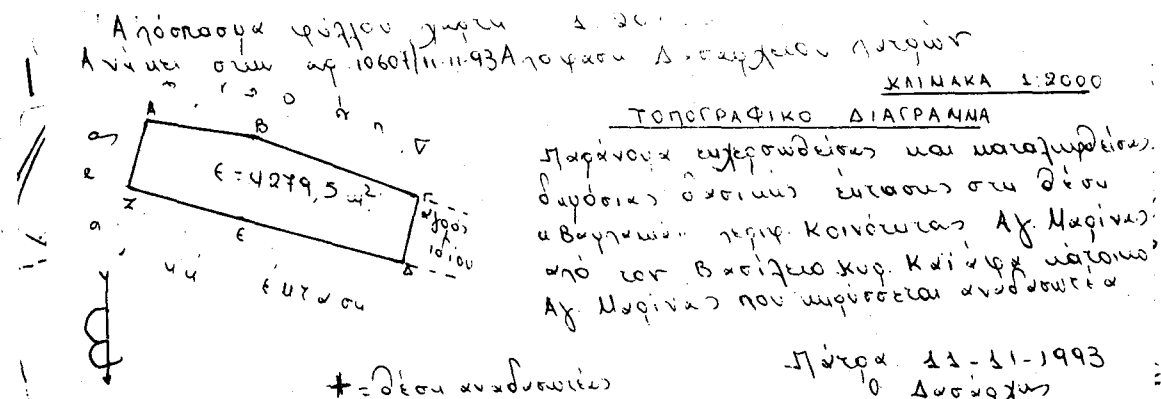 Απόσπασμα φύλλου χάρτη 1:20...
Ανήκει στην αρ. 10607/11-11-93 Απόφαση Δασαρχείου Πατρών
ΚΛΙΜΑΚΑ 1:2000
ΤΟΠΟΓΡΑΦΙΚΟ ΔΙΑΓΡΑΜΜΑ
Παράνομα εκχερσωθείσας και καταληφθείσας
δημόσιας δασικής έκτασης στη θέση
περιφ. Κοινότητας Αγ. Μαρίνας
από τον Βασίλειο Κυρ. κάτοικο
Αγ. Μαρίνας που κηρύσσεται αναδασωτέα
Α
Β
Γ
Δ
Ε
Ζ
Ε=4279,5 μ².
αγρός
ιδίου
έκταση
+ = θέση αναδασωτέας
Πάτρα 11-11-1993
Ο Δασάρχης